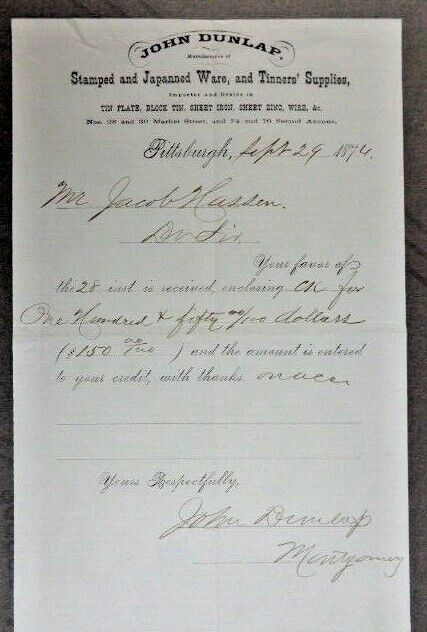 JOHN DUNLAP,
Manufacturer of
Stamped and Japanned Ware, and Tinners' Supplies,
Importer and Dealer in
TIN PLATE, BLOCK TIN, SHEET IRON, SHEET ZINC, WIRE, &c.
Nos. 28 and 30 Market Street, and 74 and 76 Second Avenue,
Pittsburgh, Sept 29 1874.
Mr Jacob
Dr Sir
Your favor of
the 28 inst is received, enclosing CK for
One Hundred & fifty 00/100 dollars
($150 00/100 ) and the amount is entered
to your credit, with thanks.
Yours Respectfully,
John Dunlap
Montgomery